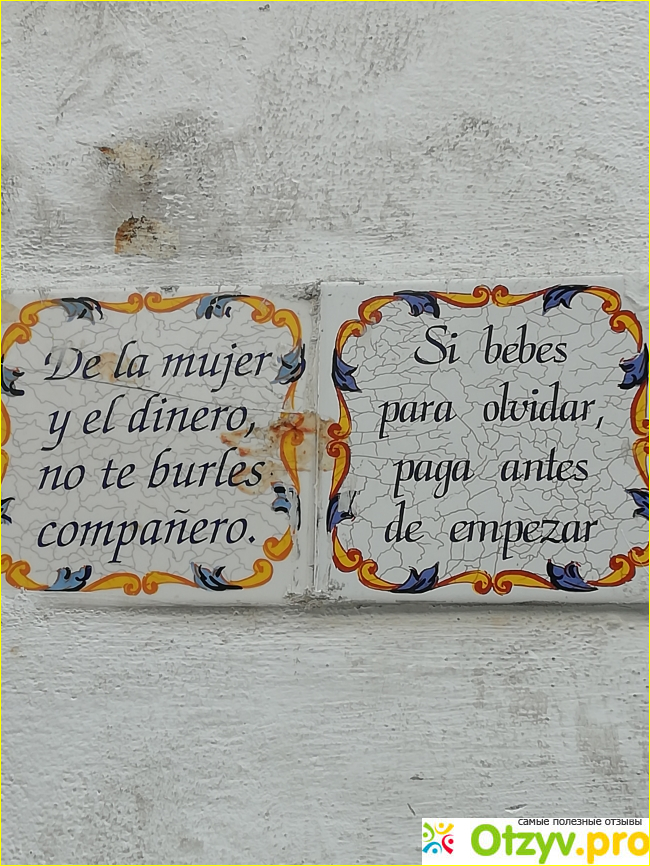 De la mujer
y el dinero,
no te burles
compañero.
Si bebes
para olvidar,
paga antes
de empezar
самые полезные отзывы
Otzyv.pro